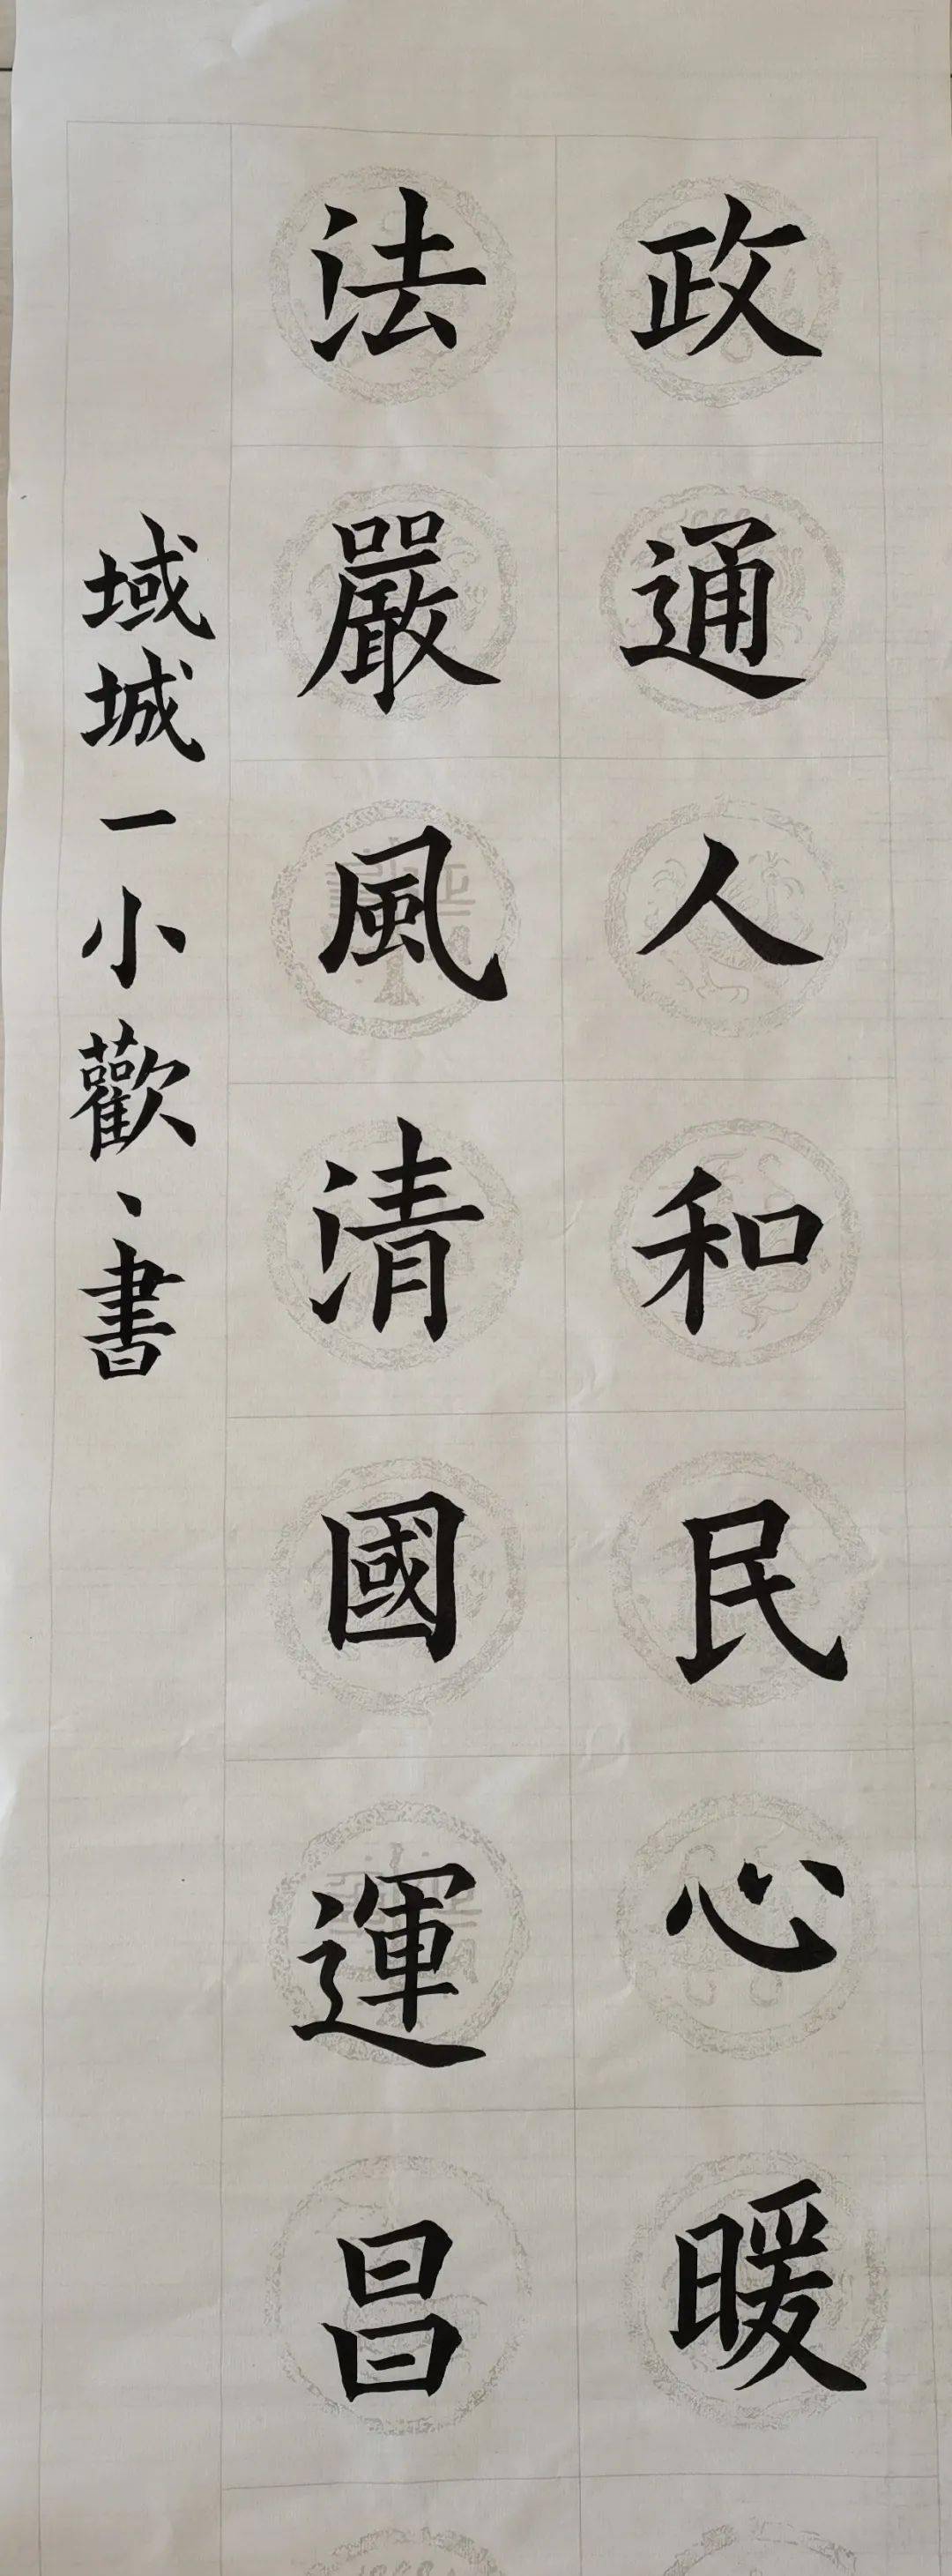 政通人和民心暖
法嚴風清國運昌
域城一小歡、書